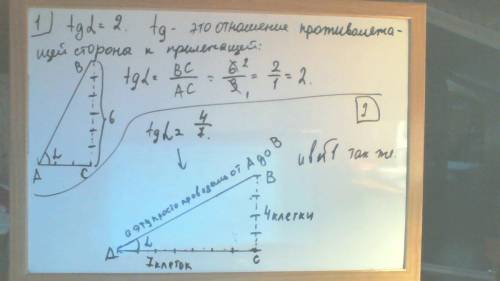 1 tg α = 2. tg - это отношение противолежа-
щей сторона к прилежащей:
tg α = BC/AC = 6²/3₁ = 2/1 = 2.
B
6
α
A C
2
tg α = 4/7.
и всё так же.
а эту просто проводишь от A до B
B
4 клетки
α
A
7 клеток
C